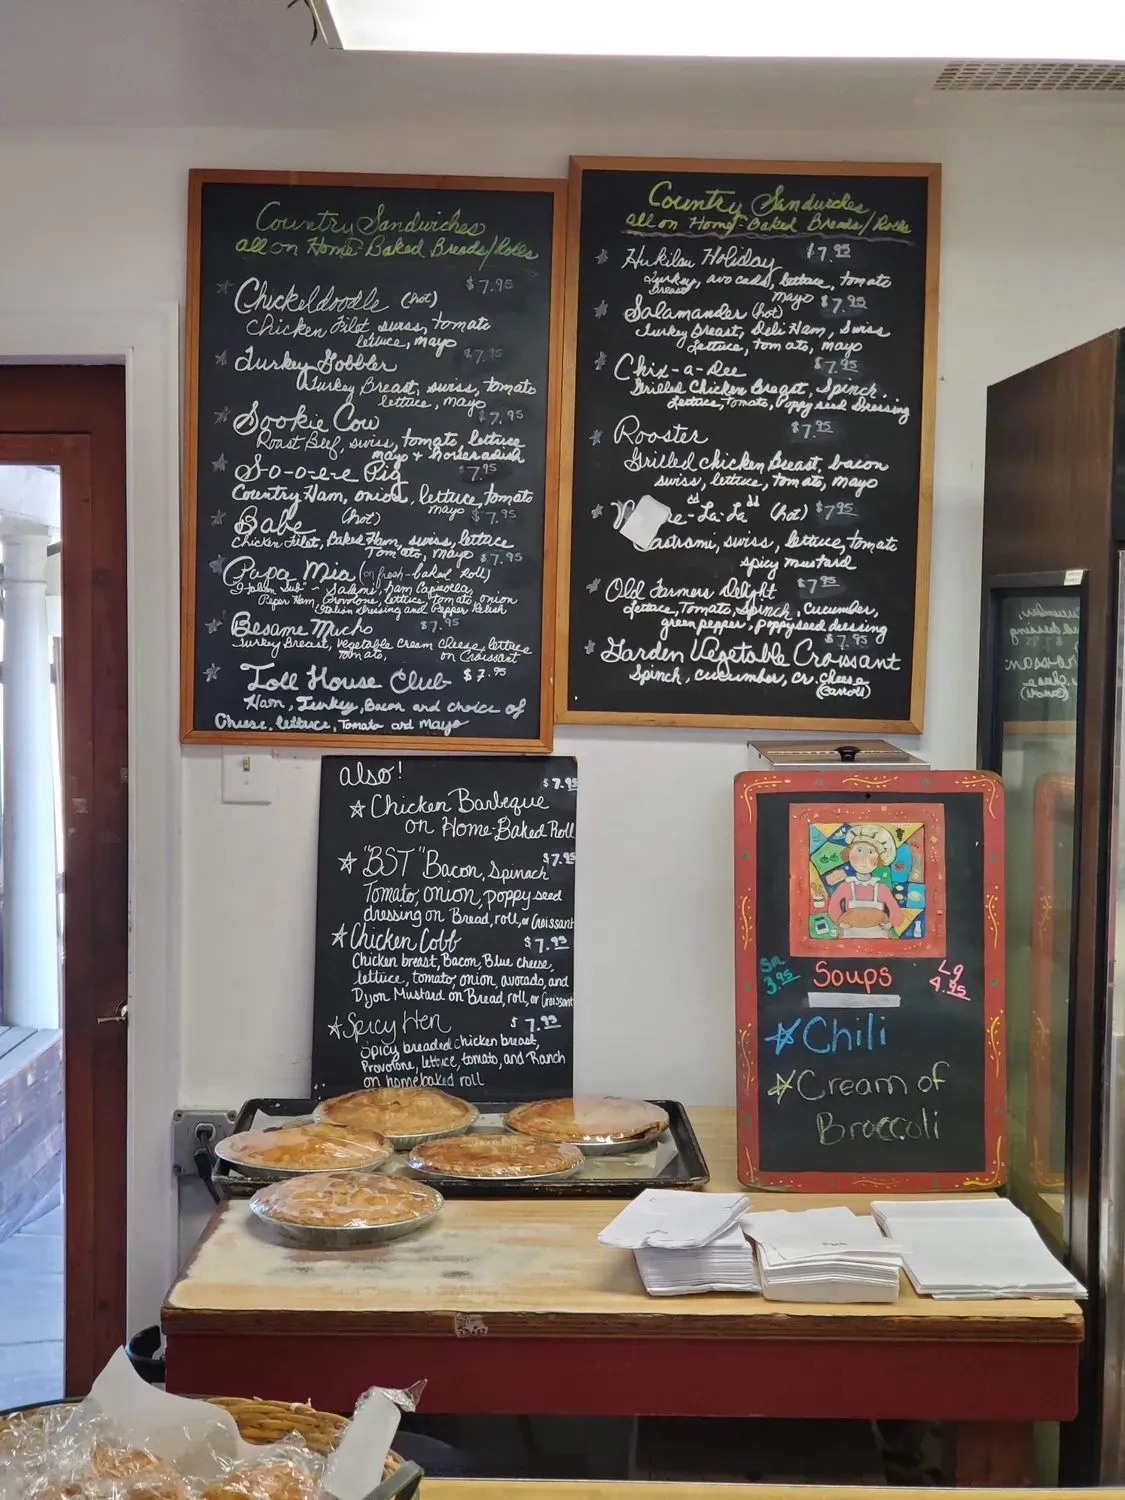 Country Sandwiches
all on Home-Baked Breads/Rolls
$7.95
Chickeldoodle (hot)
Chicken Filet, swiss, tomato
lettuce, mayo
Turkey Gobbler $7.95
Turkey Breast, swiss, tomato
lettuce, mayo
Sookie Cow $7.95
Roast Beef, swiss, tomato, lettuce
mayo & horseradish
So-o-e-e Pig 7.95
Country Ham, onion, lettuce, tomato
mayo
Babe (hot) $7.95
Chicken Filet, Baked Ham, swiss, lettuce
Tomato, mayo
$7.95
Papa Mia (on fresh-baked roll)
"Italian Sub" - Salami, ham Capicolla,
Peper Ham, Provolone, lettuce, tomato, onion
Italian dressing and Pepper Relish
Besame Mucho $7.95
Turkey Breast, vegetable cream cheese, lettuce
tomato, on Croissant
Toll House Club $7.95
Ham, Turkey, Bacon and choice of
Cheese, lettuce, Tomato and mayo
Country Sandwiches
all on Home-Baked Breads/Rolls
Hukilau Holiday $7.95
Turkey, avocado, lettuce, tomato
Breast mayo
Salamander (hot) $7.95
Turkey Breast, Deli Ham, Swiss
Lettuce, tomato, mayo
Chix-a-Dee $7.95
Grilled Chicken Breast, Spinch.
Lettuce, Tomato, Poppy seed Dressing
Rooster $7.95
Grilled chicken Breast, bacon
swiss, lettuce, tomato, mayo
-La-La (hot) $7.95
Pastrami, swiss, lettuce, tomato
spicy mustard
Old Farmers Delight $7.95
Lettuce, Tomato, Spinch, cucumber,
green pepper, poppyseed dressing
$7.95
Garden Vegetable Croissant
Spinch, cucumber, cr. cheese
(carrot)
also!
$7.95
Chicken Barbeque
on Home-Baked Roll
$7.95
"BST" Bacon, Spinach
Tomato, onion, poppy seed
dressing on Bread, roll, or Croissant
Chicken Cobb $7.95
Chicken breast, Bacon, Blue cheese,
lettuce, tomato, onion, avocado, and
Dijon Mustard on Bread, roll, or Croissant
Spicy Hen $7.95
Spicy breaded chicken breast,
Provolone, lettuce, tomato, and Ranch
on homebaked roll
Sm 3.95 Soups Lg 4.95
Chili
Cream of
Broccoli